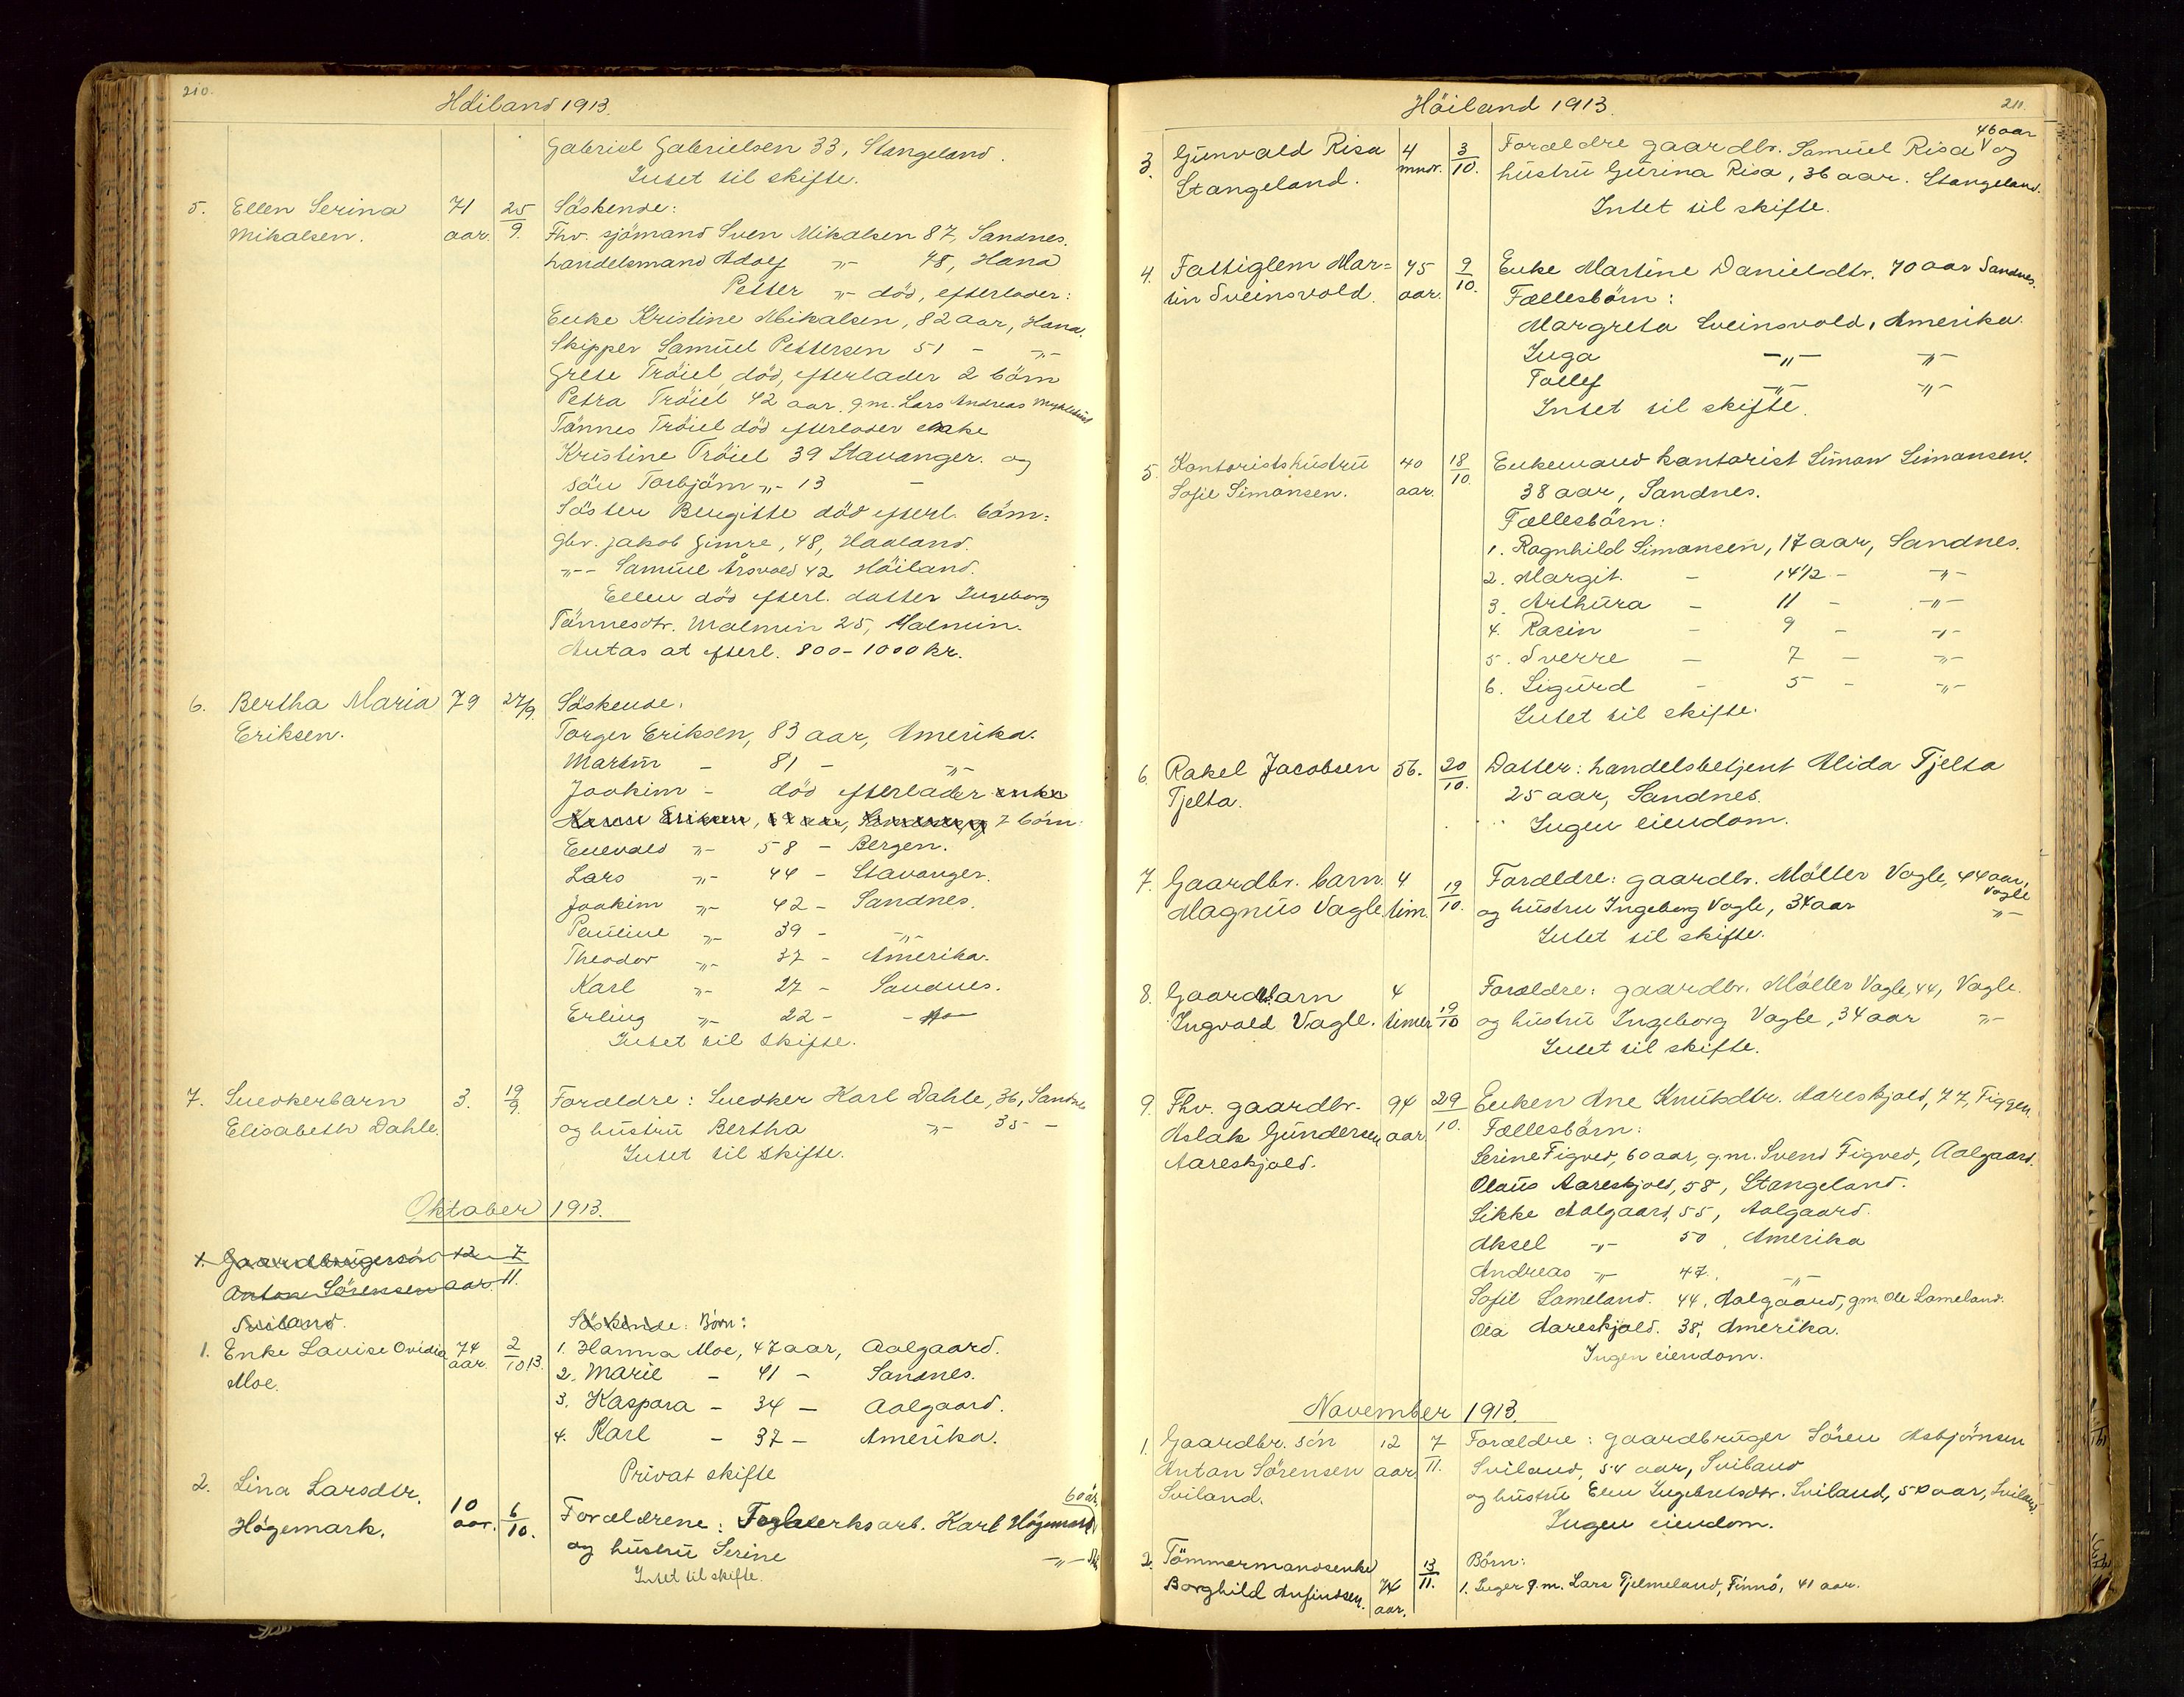 210.
Höiland 1913.
Gabriel Gabrielsen 33, Stangeland.
Intet til skifte.
5. Ellen Serina 71 25/9 Söskende:
Mikalsen. aar. Fhv. sjömand Sven Mikalsen 87, Sandnes.
handelsmand Adolf -"- 78, Hana
Petter -"- död, efterlader:
Enke Kristine Mikalsen, 82 aar, Hana.
Skipper Samuel Pettersen 51 - -"-
Grete Tröiel död, efterlader 2 börn
Petra Tröiel 42 aar g.m. Lars Andreas
Tönnes Tröiel död efterlader enke
Kristine Tröiel 39 Stavanger. og
sön Torbjörn -"- 13 -
Söster Bengitte död efterl. börn:
gbr. Jakob Gimre, 48, Haaland.
-"- Samuel Årsvold 42 Höiland.
Ellen död efterl. datter Ingeborg
Tönnesdtr. Malmin 25, Malmin.
Antas at efterl. 800-1000 kr.
6. Bertha Maria 79 27/9. Söskende.
Eriksen. Torger Eriksen, 83 aar, Amerika.
Martin - 81 - -"-
Joakim - död efterlader enke
7 börn:
Enevald -"- 58 - Bergen.
Lars -"- 44 - Stavanger.
Joakim -"- 42 - Sandnes.
Pauline -"- 39 - -"-
Theodor -"- 37 - Amerika.
Karl -"- 27 - Sandnes.
Erling -"- 22 -
Intet til skifte.
7. Snedkerbarn 3. 19/9. Forældre: Snedker Karl Dahle, 36, Sandnes
Elisabeth Dahle. og hustru Bertha -"- 35 -
Intet til skifte.
Oktober 1913.
1. Gaardbrugersön 12 7/11.
Anton Sörensen aar.
Sviland.
Söskende: Börn:
1. Enke Lovise Ovidia 74 aar. 2/10 13. 1. Hanna Moe, 47 aar, Aalgaard.
Moe. 2. Marie - 41 - Sandnes.
3. Kaspara - 34 - Aalgaard.
4. Karl - 37 - Amerika.
Privat skifte
2. Lina Larsdtr. 10 aar. 6/10. Forældrene: Teglverksarb. Karl Högemark 60 år,
Högemark. og hustru Serine -"-
Intet til skifte.
211.
Höiland 1913.
3. Gunvald Risa 4 mndr. 3/10. Forældre gaardbr. Samuel Risa 46 aar og
Stangeland. hustru Gurina Risa, 36 aar. Stangeland.
Intet til skifte.
4. Fattiglem Mar= 75 9/10. Enke Martine Danielsdtr. 70 aar Sandnes.
tin Sveinsvold. aar. Fællesbörn:
Margreta Sveinsvold, Amerika.
Inga -"- -"-
Tollef -"- -"-
Intet til skifte.
5. Kontoristshustru 40 18/10. Enkemand kontorist Simon Simonsen.
Sofie Simonsen. aar. 38 aar, Sandnes.
Fællesbörn:
1. Ragnhild Simonsen, 17 aar, Sandnes.
2. Margit. - 14 1/2 - -"-
3. Arthura - 11 - -"-
4. Rasin - 9 - -"-
5. Sverre - 7 - -"-
6. Sigurd - 5 - -"-
Intet til skifte.
6. Rakel Jacobsen 56. 20/10. Datter: handelsbetjent Alida Tjelta
Tjelta. 25 aar, Sandnes.
Ingen eiendom.
7. Gaardbr. barn 4 19/10. Forældre: gaardbr. Möller Vagle, 44 aar, Vagle
Magnus Vagle tim. og hustru Ingeborg Vagle, 34 aar -"-
Intet til skifte.
8. Gaardbr.barn 4 19/10 Forældre: gaardbr. Möller Vagle, 44, Vagle.
Ingvald Vagle. timer og hustru Ingeborg Vagle, 34 aar -"-
Intet til skifte.
9. Fhv. gaardbr. 94 29/10. Enken Ane Knutsdtr. Aareskjold, 77, Figgen
Aslak Gundersen aar Fællesbörn:
Aareskjold. Serine Figved, 60 aar, g.m. Svend Figved, Aalgaard.
Olaus Aareskjold, 58, Stangeland.
Sikke Aalgaard, 55, Aalgaard.
Aksel -"- 50, Amerika
Andreas -"- 47, -"-
Sofie Lomeland. 44, Aalgaard, gm. Ole Lomeland.
Ola Aareskjold. 38, Amerika.
Ingen eiendom.
November 1913.
1. Gaardbr. sön 12 7/11. Forældre: gaardbruger Sören Asbjörnsen
Anton Sörensen aar. Sviland, 54 aar, Sviland
Sviland. og hustru Elen Ingebretsdtr. Sviland, 50 aar, Sviland.
Ingen eiendom.
2. Tömmermandsenke 13/11. Börn:
Borghild Anfindsen. 74 aar. 1. Inger g.m. Lars Tjelmeland, Finnö, 41 aar.